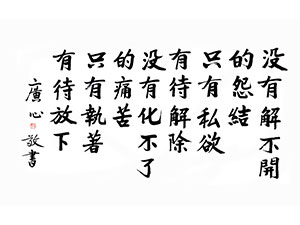 没有解不開
的怨結
只有私欲
有待解除
没有化不了
的痛苦
只有執著
有待放下
廣心敬書